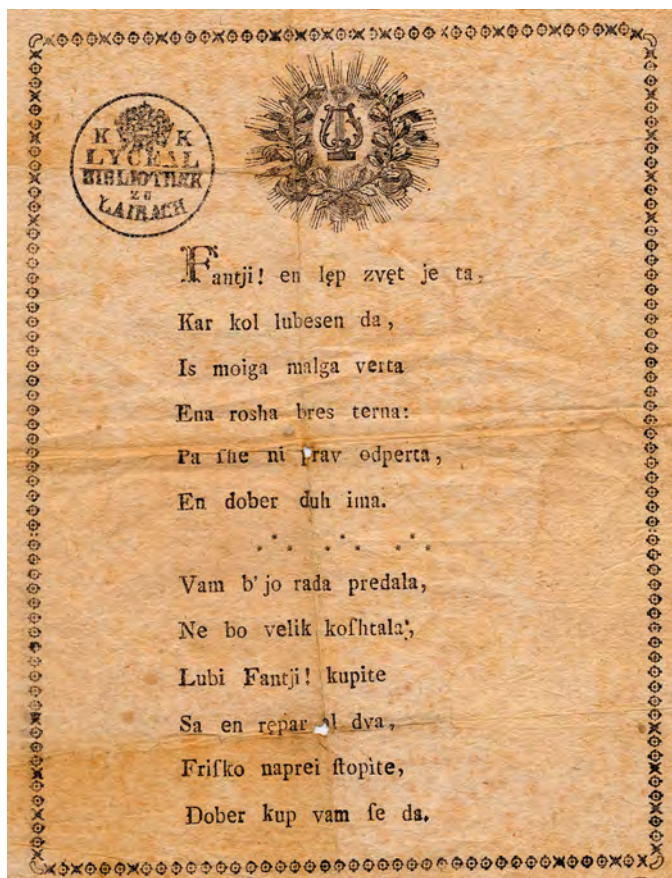 K K
LYCEAL
BIBLIOTHEK
ZU
LAIBACH
Fantji! en lęp zvęt je ta,
Kar kol lubesen da,
Is moiga malga verta
Ena rosha bres terna:
Pa ſhe ni prav odperta,
En dober duh ima.
Vam b' jo rada predala,
Ne bo velik koſhtala,
Lubi Fantji! kupite
Sa en rępar al dva,
Friſko naprei ſtopìte,
Dober kup vam ſe da.